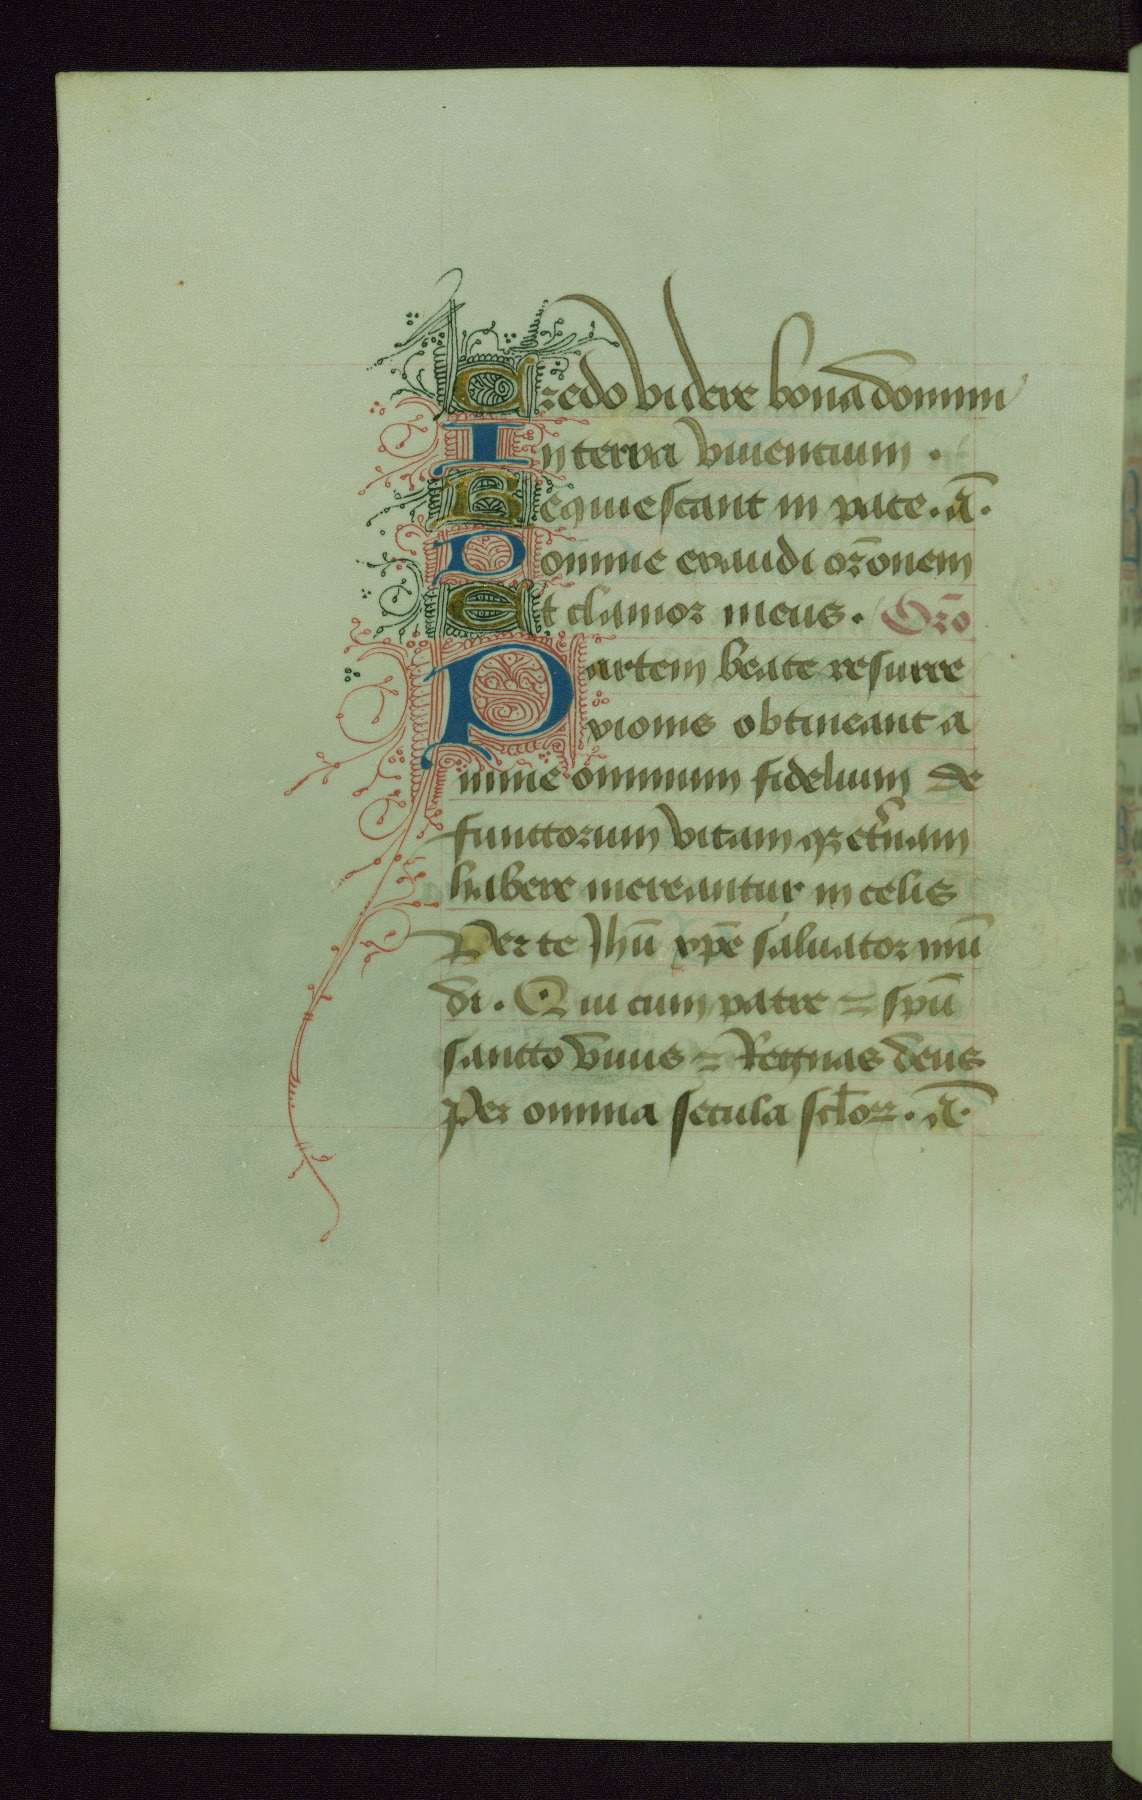 Credo videre bona domini
In terra viventium .
Requiescant in pace . A̅ .
Domine exaudi oro̅nem
Et clamor meus . Oro̅
Partem beate resurre
xionis obtineant a
nime omnium fidelium de
functorum vitam qz et̓nam
habere mereantur in celis
Per te Jhu̅ xpe̅ salvator mu̅
di . Qui cum patre ⁊ spu̅
sancto vivis ⁊ Regnas deus
per omnia secula sclor̅ꝝ . A̅ .